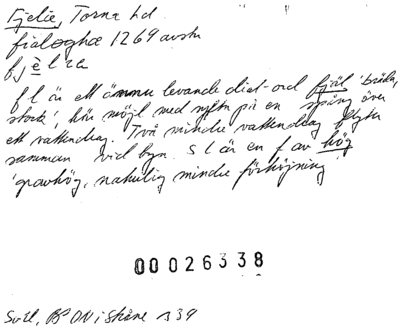 Fjelie, Torna hd
fialoghæ 1269 avskr
fjèlra
f l är ett ännu levande dial-ord fjäl 'bräda,
stock', här möjl med syftn på en spång över
ett vattendrag. Två mindre vattendrag flyter
samman vid byn. s l är en f av hög
'gravhög, naturlig mindre förhöjning'
00026338
Svtl, BP ON i Skåne s39